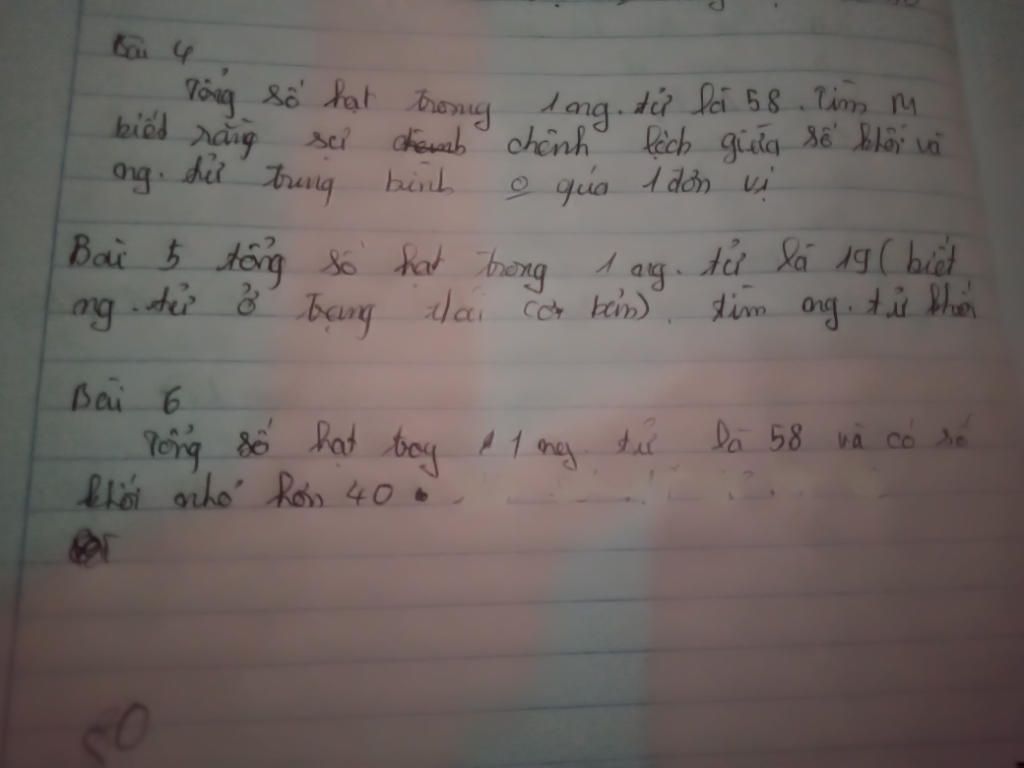 Bài 4
Tổng số hạt trong 1 ng.tử là 58. Tìm M
biết rằng sự chênh lệch giữa số khối và
ng.tử trung bình o qúa 1 đơn vị
Bài 5 tổng số hạt trong 1 ng.tử là 19 (biết
ng.tử ở trạng thái cơ bản). tìm ng.tử khối
Bài 6
Tổng số hạt tog 1 ng.tử là 58 và có số
khối nhỏ hơn 40.
50